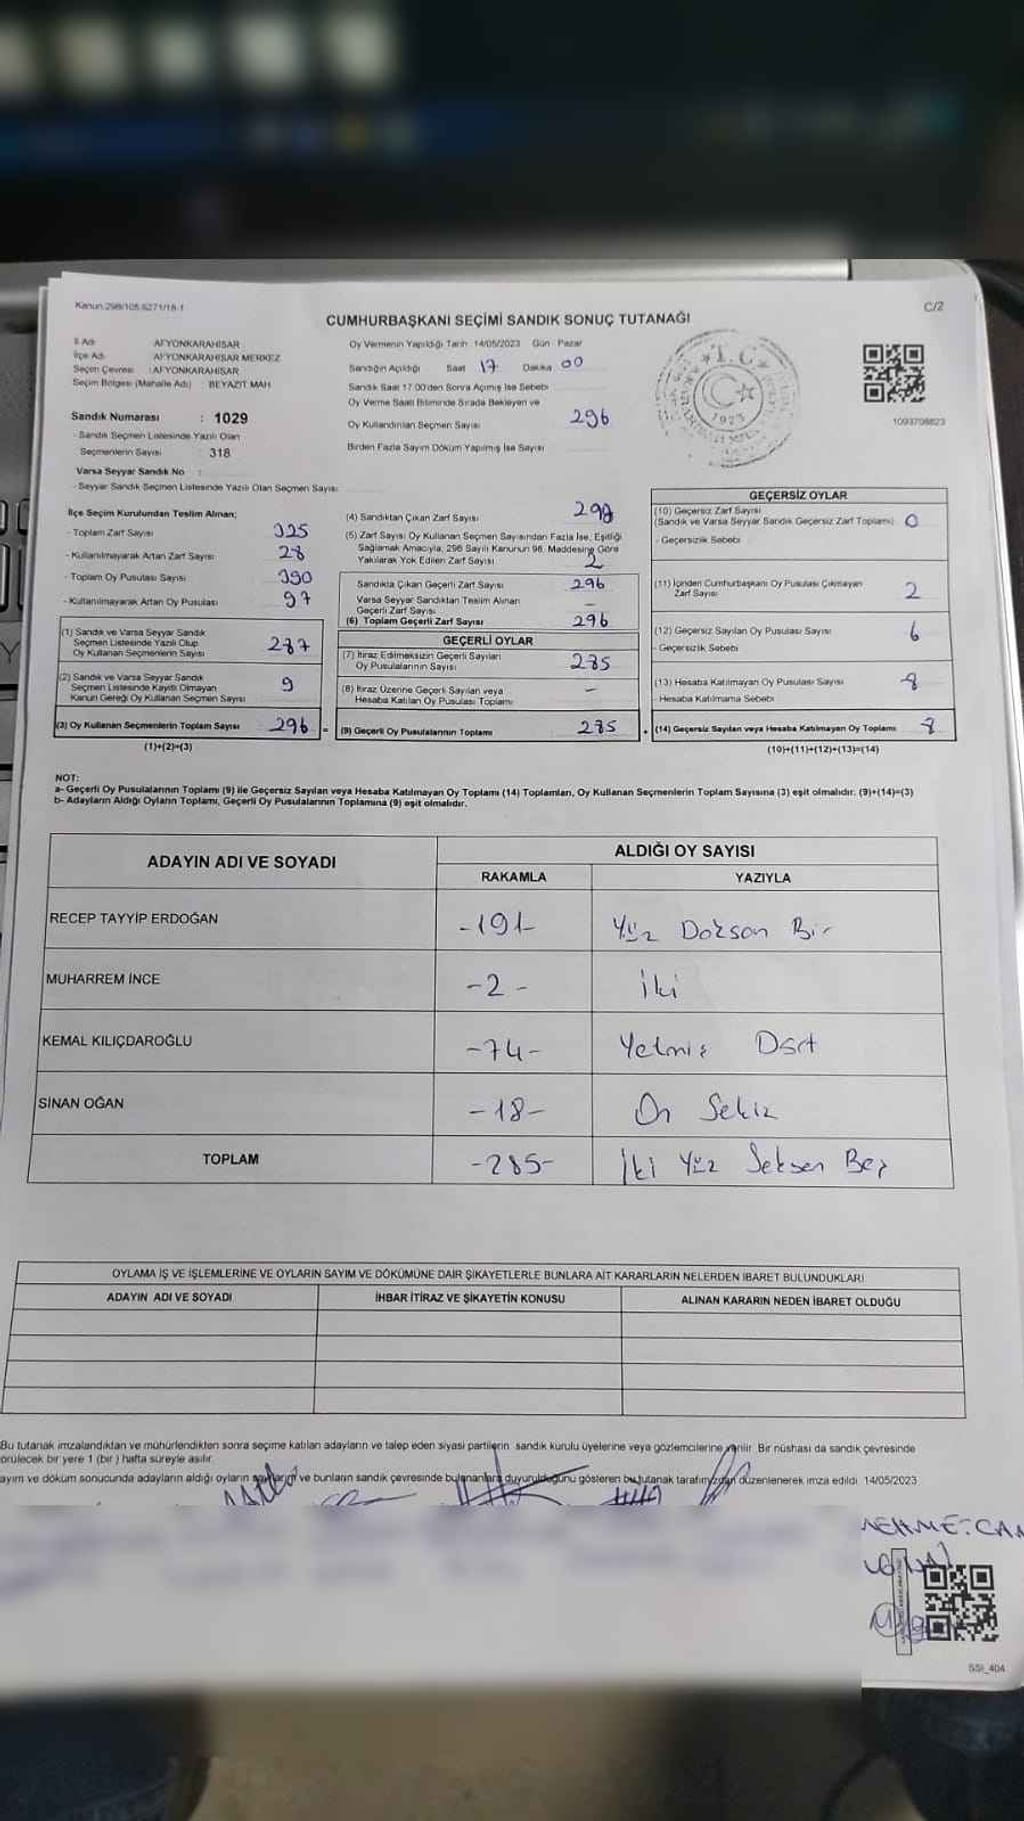 Kanun 298/105.6271/18-1
C/2
CUMHURBAŞKANI SEÇİMİ SANDIK SONUÇ TUTANAĞI
İl Adı AFYONKARAHİSAR
İlçe Adı AFYONKARAHİSAR MERKEZ
Seçim Çevresi : AFYONKARAHİSAR
Seçim Bölgesi (Mahalle Adı) BEYAZIT MAH
Sandık Numarası : 1029
- Sandık Seçmen Listesinde Yazılı Olan
Seçmenlerin Sayısı 318
Varsa Seyyar Sandık No :
- Seyyar Sandık Seçmen Listesinde Yazılı Olan Seçmen Sayısı
Oy Vermenin Yapıldığı Tarih 14/05/2023 Gün Pazar
Sandığın Açıldığı Saat 17 Dakika 00
Sandık Saat 17.00'den Sonra Açılmış İse Sebebi
Oy Verme Saati Bitiminde Sırada Bekleyen ve
Oy Kullandırılan Seçmen Sayısı 296
Birden Fazla Sayım Döküm Yapılmış İse Sayısı
T.C.
1923
1093708823
İlçe Seçim Kurulundan Teslim Alınan;
- Toplam Zarf Sayısı 325
- Kullanılmayarak Artan Zarf Sayısı 28
- Toplam Oy Pusulası Sayısı 390
- Kullanılmayarak Artan Oy Pusulası 97
(1) Sandık ve Varsa Seyyar Sandık
Seçmen Listesinde Yazılı Olup
Oy Kullanan Seçmenlerin Sayısı 287
(2) Sandık ve Varsa Seyyar Sandık
Seçmen Listesinde Kayıtlı Olmayan
Kanun Gereği Oy Kullanan Seçmen Sayısı 9
(3) Oy Kullanan Seçmenlerin Toplam Sayısı 296 =
(1)+(2)=(3)
(4) Sandıktan Çıkan Zarf Sayısı 298
(5) Zarf Sayısı Oy Kullanan Seçmen Sayısından Fazla İse, Eşitliği
Sağlamak Amacıyla, 298 Sayılı Kanunun 98. Maddesine Göre
Yakılarak Yok Edilen Zarf Sayısı 2
Sandıkta Çıkan Geçerli Zarf Sayısı 296
Varsa Seyyar Sandıktan Teslim Alınan
Geçerli Zarf Sayısı -
(6) Toplam Geçerli Zarf Sayısı 296
GEÇERLİ OYLAR
(7) İtiraz Edilmeksizin Geçerli Sayılan
Oy Pusulalarının Sayısı 285
(8) İtiraz Üzerine Geçerli Sayılan veya
Hesaba Katılan Oy Pusulası Toplamı -
(9) Geçerli Oy Pusulalarının Toplamı 285
GEÇERSİZ OYLAR
(10) Geçersiz Zarf Sayısı
(Sandık ve Varsa Seyyar Sandık Geçersiz Zarf Toplamı) 0
- Geçersizlik Sebebi
(11) İçinden Cumhurbaşkanı Oy Pusulası Çıkmayan
Zarf Sayısı 2
(12) Geçersiz Sayılan Oy Pusulası Sayısı 6
- Geçersizlik Sebebi
(13) Hesaba Katılmayan Oy Pusulası Sayısı
Hesaba Katılmama Sebebi
(14) Geçersiz Sayılan veya Hesaba Katılmayan Oy Toplamı 8
(10)+(11)+(12)+(13)=(14)
NOT:
a- Geçerli Oy Pusulalarının Toplamı (9) ile Geçersiz Sayılan veya Hesaba Katılmayan Oy Toplamı (14) Toplamları, Oy Kullanan Seçmenlerin Toplam Sayısına (3) eşit olmalıdır. (9)+(14)=(3)
b- Adayların Aldığı Oyların Toplamı, Geçerli Oy Pusulalarının Toplamına (9) eşit olmalıdır.
ADAYIN ADI VE SOYADI ALDIĞI OY SAYISI
RAKAMLA YAZIYLA
RECEP TAYYİP ERDOĞAN -191- Yüz Doksan Bir
MUHARREM İNCE -2- İki
KEMAL KILIÇDAROĞLU -74- Yetmiş Dört
SİNAN OĞAN -18- On Sekiz
TOPLAM -285- İki Yüz Seksen Beş
OYLAMA İŞ VE İŞLEMLERİNE VE OYLARIN SAYIM VE DÖKÜMÜNE DAİR ŞİKAYETLERLE BUNLARA AİT KARARLARIN NELERDEN İBARET BULUNDUKLARI
ADAYIN ADI VE SOYADI İHBAR İTİRAZ VE ŞİKAYETİN KONUSU ALINAN KARARIN NEDEN İBARET OLDUĞU
Bu tutanak imzalandıktan ve mühürlendikten sonra seçime katılan adayların ve talep eden siyasi partilerin sandık kurulu üyelerine veya gözlemcilerine verilir. Bir nüshası da sandık çevresinde
örülecek bir yere 1 (bir) hafta süreyle asılır.
ayım ve döküm sonucunda adayların aldığı oyların sayılarını ve bunların sandık çevresinde bulunanlara duyurulduğunu gösteren bu tutanak tarafımızdan düzenlenerek imza edildi 14/05/2023
MEHMET CAN
SSI_404